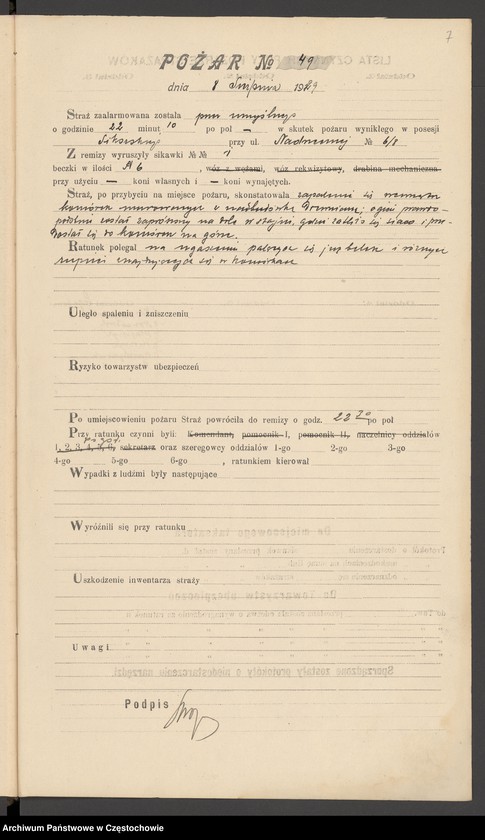 7
POŻAR № 49
dnia 1 Sierpnia 1929
Straż zaalarmowana została przez umyślnego
o godzinie 22 minut 10 po poł — w skutek pożaru wynikłego w posesji
przy ul. Nadrzecznej № 6/8
Z remizy wyruszyły sikawki №№ 1
beczki w ilości № 6, wóz z wężami, wóz rekwizytowy, drabina mechaniczna
przy użyciu — koni własnych i — koni wynajętych.
Straż, po przybyciu na miejsce pożaru, skonstatowała zapalenie się wewnątrz
komórek murowanych ogień prawdo-
podobnie został zaprószony na dole w stajni, gdzie zatliło się siano i prze-
dostał się do komórek na górze.
Ratunek polegał na ugaszeniu palących się już belek i różnych
rupieci znajdujących się w komórkach
Uległo spaleniu i zniszczeniu
Ryzyko towarzystw ubezpieczeń
Po umiejscowieniu pożaru Straż powróciła do remizy o godz. 22 20 po poł
Przy ratunku czynni byli: Komendant, pomocnik I, pomocnik II, naczelnicy oddziałów
1, 2, 3, 4, 5, 6, sekretarz oraz szeregowcy oddziałów 1-go 2-go 3-go
4-go 5-go 6-go , ratunkiem kierował
Wypadki z ludźmi były następujące
Wyróżnili się przy ratunku
Uszkodzenie inwentarza straży
Uwagi
Podpis
Archiwum Państwowe w Częstochowie